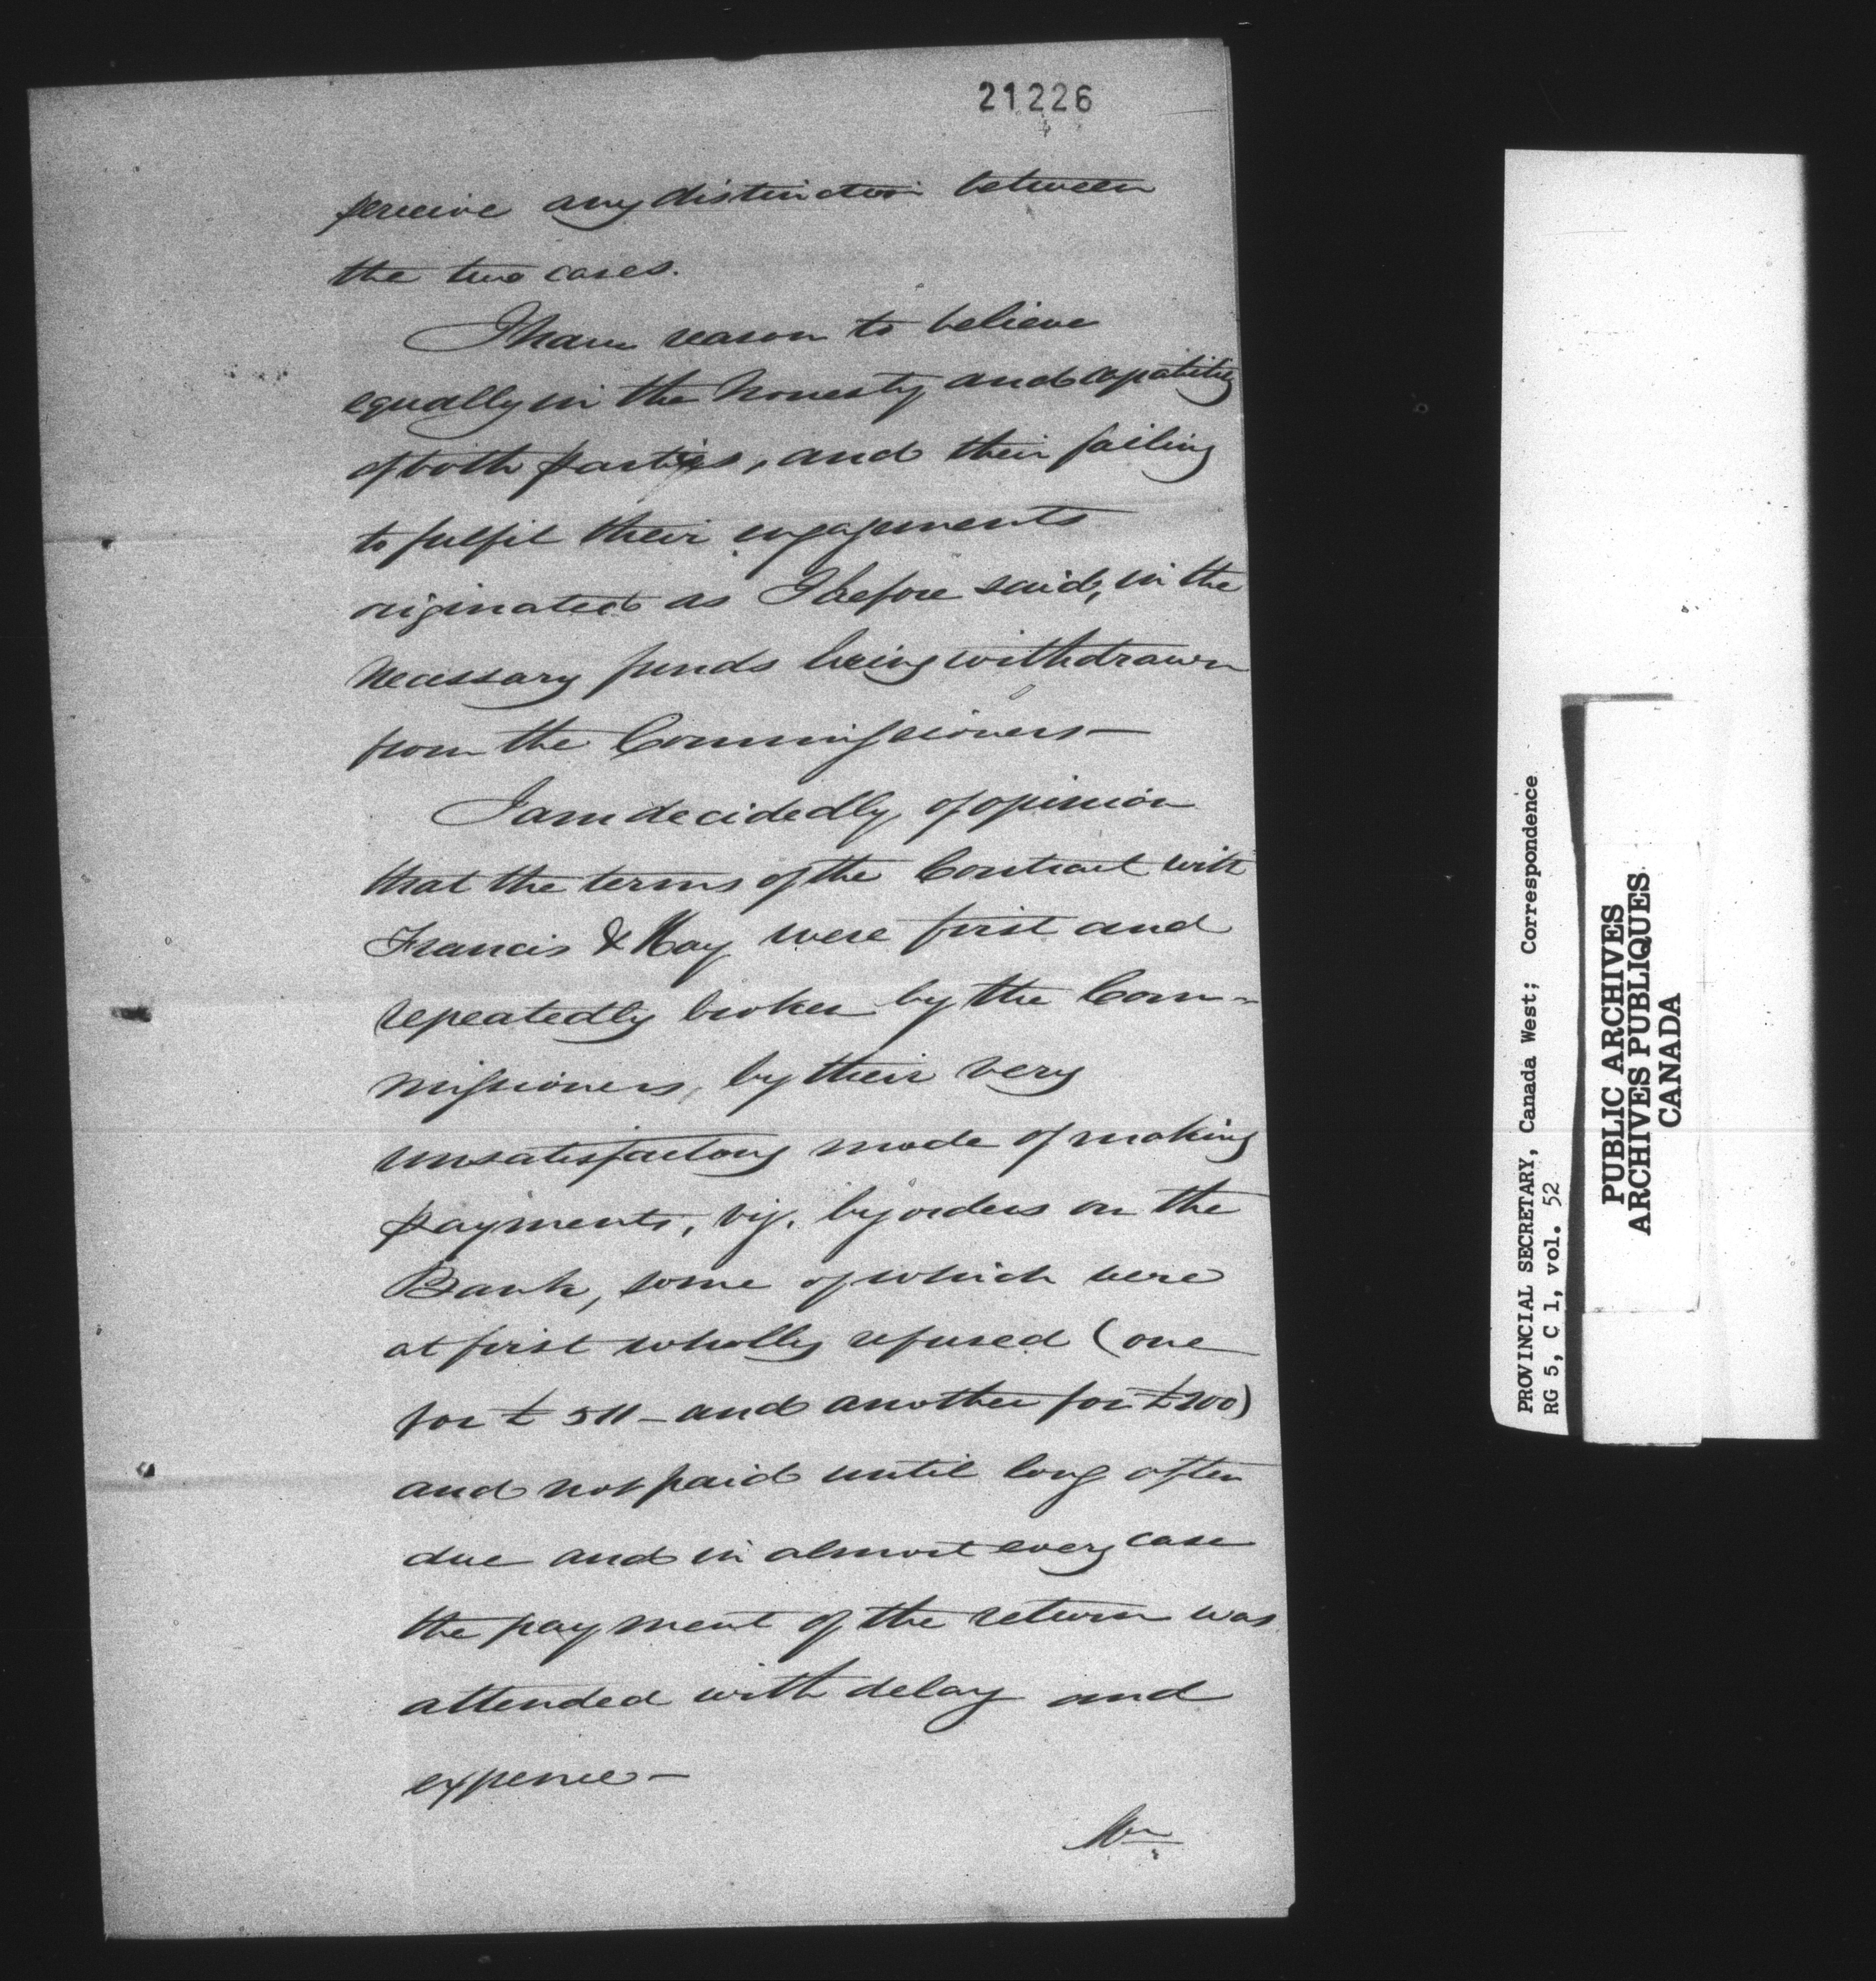 21226
perceive any distinction between
the two cases.
I have reason to believe
equally in the honesty and capability
of both parties, and their failing
to fulfil their engagements
originated as I before said, in the
necessary funds being withdrawn
from the Commissioners—
I am decidedly of opinion
that the terms of the Contract with
Francis & Hay were first and
repeatedly broken by the Com-
missioners, by their very
unsatisfactory mode of making
payments, viz. by orders on the
Bank, some of which were
at first wholly refused (one
for £511 – and another for £200)
and not paid until long after
due and in almost every case
the payment of the return was
attended with delay and
expence—
Mr
PROVINCIAL SECRETARY, Canada West; Correspondence
RG 5, C 1, vol. 52
PUBLIC ARCHIVES
ARCHIVES PUBLIQUES
CANADA